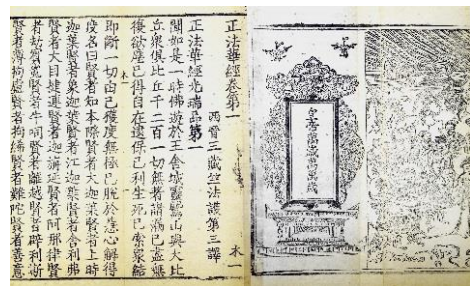 皇帝萬歲萬萬歲
正法華經卷第一
木一
西晉三藏竺法護第三譯
正法華經光瑞品第一
聞如是一時佛遊於王舍城靈鷲山與大比
丘衆俱比丘千二百一切無著諸漏已盡無
復欲塵已得自在逮得己利生死已索衆結
即斷一切由已獲度無極已脫於慧心解得
度名曰賢者知本際賢者大迦葉賢者上時
迦葉賢者象迦葉賢者江迦葉賢者舍利弗
賢者大目揵連賢者迦旃延賢者阿那律賢
者劫賓㝹賢者牛呞賢者離越賢者譬利斯
賢者薄拘盧賢者拘絺賢者難陀賢者善意